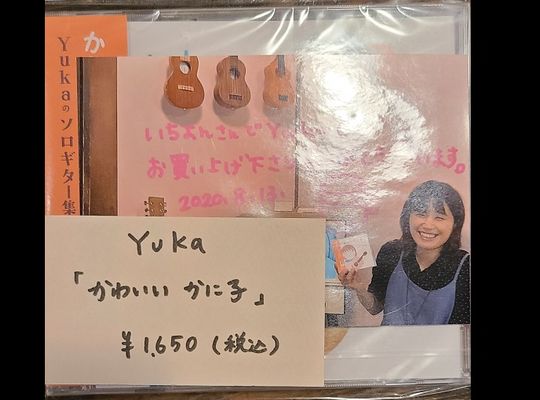 か
Yukaのソロギター集
いちよんさんでYu
お買い上げ下さ います。
2020.8.
Yuka
「かわいい かに子」
¥1,650 (税込)